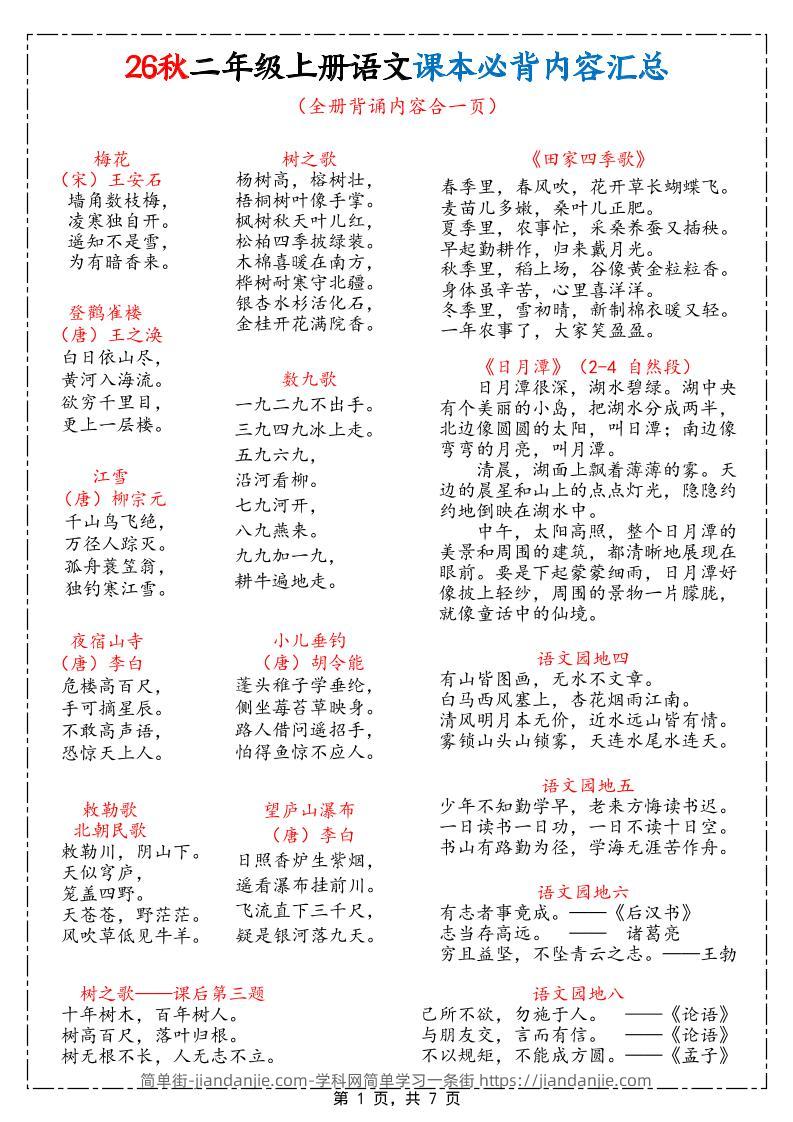 26秋二年级上册语文课本必背内容汇总
（全册背诵内容合一页）
梅花
（宋）王安石
墙角数枝梅，
凌寒独自开。
遥知不是雪，
为有暗香来。
登鹳雀楼
（唐）王之涣
白日依山尽，
黄河入海流。
欲穷千里目，
更上一层楼。
江雪
（唐）柳宗元
千山鸟飞绝，
万径人踪灭。
孤舟蓑笠翁，
独钓寒江雪。
夜宿山寺
（唐）李白
危楼高百尺，
手可摘星辰。
不敢高声语，
恐惊天上人。
敕勒歌
北朝民歌
敕勒川，阴山下。
天似穹庐，
笼盖四野。
天苍苍，野茫茫。
风吹草低见牛羊。
树之歌——课后第三题
十年树木，百年树人。
树高百尺，落叶归根。
树无根不长，人无志不立。
树之歌
杨树高，榕树壮，
梧桐树叶像手掌。
枫树秋天叶儿红，
松柏四季披绿装。
木棉喜暖在南方，
桦树耐寒守北疆。
银杏水杉活化石，
金桂开花满院香。
数九歌
一九二九不出手。
三九四九冰上走。
五九六九，
沿河看柳。
七九河开，
八九燕来。
九九加一九，
耕牛遍地走。
小儿垂钓
（唐）胡令能
蓬头稚子学垂纶，
侧坐莓苔草映身。
路人借问遥招手，
怕得鱼惊不应人。
望庐山瀑布
（唐）李白
日照香炉生紫烟，
遥看瀑布挂前川。
飞流直下三千尺，
疑是银河落九天。
《田家四季歌》
春季里，春风吹，花开草长蝴蝶飞。
麦苗儿多嫩，桑叶儿正肥。
夏季里，农事忙，采桑养蚕又插秧。
早起勤耕作，归来戴月光。
秋季里，稻上场，谷像黄金粒粒香。
身体虽辛苦，心里喜洋洋。
冬季里，雪初晴，新制棉衣暖又轻。
一年农事了，大家笑盈盈。
《日月潭》（2-4 自然段）
日月潭很深，湖水碧绿。湖中央
有个美丽的小岛，把湖水分成两半，
北边像圆圆的太阳，叫日潭；南边像
弯弯的月亮，叫月潭。
清晨，湖面上飘着薄薄的雾。天
边的晨星和山上的点点灯光，隐隐约
约地倒映在湖水中。
中午，太阳高照，整个日月潭的
美景和周围的建筑，都清晰地展现在
眼前。要是下起蒙蒙细雨，日月潭好
像披上轻纱，周围的景物一片朦胧，
就像童话中的仙境。
语文园地四
有山皆图画，无水不文章。
白马西风塞上，杏花烟雨江南。
清风明月本无价，近水远山皆有情。
雾锁山头山锁雾，天连水尾水连天。
语文园地五
少年不知勤学早，老来方悔读书迟。
一日读书一日功，一日不读十日空。
书山有路勤为径，学海无涯苦作舟。
语文园地六
有志者事竟成。——《后汉书》
志当存高远。 —— 诸葛亮
穷且益坚，不坠青云之志。——王勃
语文园地八
己所不欲，勿施于人。 ——《论语》
与朋友交，言而有信。 ——《论语》
不以规矩，不能成方圆。——《孟子》
简单街-jiandanjie.com-学科网简单学习一条街 https://jiandanjie.com
第 1 页，共 7 页